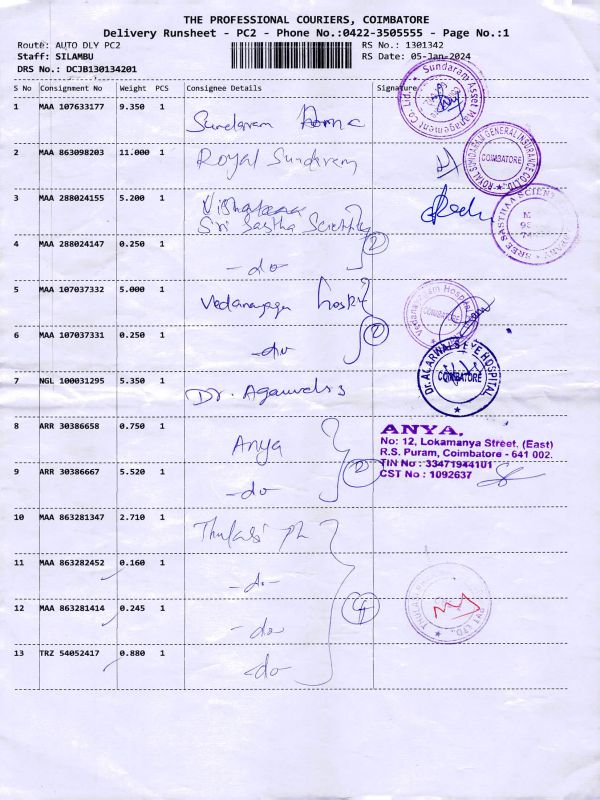 THE PROFESSIONAL COURIERS, COIMBATORE
Delivery Runsheet - PC2 - Phone No.:0422-3505555 - Page No.:1
Route: AUTO DLY PC2 RS No.: 1301342
Staff: SILAMBU RS Date: 05-Jan-2024
DRS No.: DCJB130134201
S No Consignment No Weight PCS Consignee Details Signature
1 MAA 107633177 9.350 1 Sundaram
Sundaram Asset Management Co. Ltd.
2 MAA 863098203 11.000 1 Royal Sundaram
ROYAL SUNDARAM GENERAL INSURANCE CO. LTD.
COIMBATORE
3 MAA 288024155 5.200 1 Sri Sastha Scientific
SREE SASTHAA SCIENTIFIC
4 MAA 288024147 0.250 1 - do - 2
5 MAA 107037332 5.000 1 Vedanayagam Hospt
Vedanayagam Hospital
COIMBATORE
6 MAA 107037331 0.250 1 - do 2
7 NGL 100031295 5.350 1 Dr. Agarwals
Dr. AGARWAL'S EYE HOSPITAL
COIMBATORE
8 ARR 30386658 0.750 1 Anya
ANYA,
No: 12, Lokamanya Street, (East)
R.S. Puram, Coimbatore - 641 002.
TIN No : 33471944101
CST No : 1092637
9 ARR 30386667 5.520 1 - do - 2
10 MAA 863281347 2.710 1 Thulasi
11 MAA 863282452 0.160 1 - do -
12 MAA 863281414 0.245 1 - do 4
PVT LTD.
13 TRZ 54052417 0.880 1 - do -